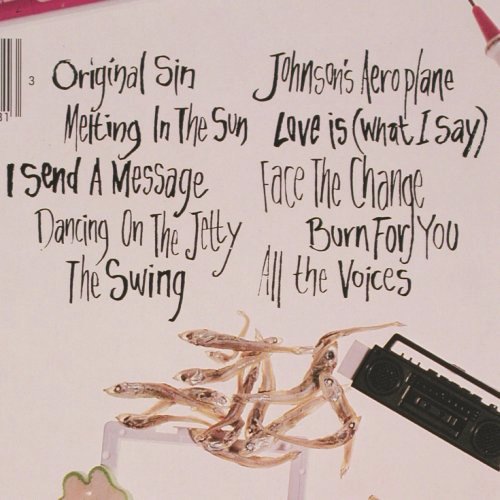 3
81
Original Sin
Melting In The Sun
I Send A Message
Dancing On The Jetty
The Swing
Johnson's Aeroplane
Love is (what I say)
Face The Change
Burn For You
All the Voices